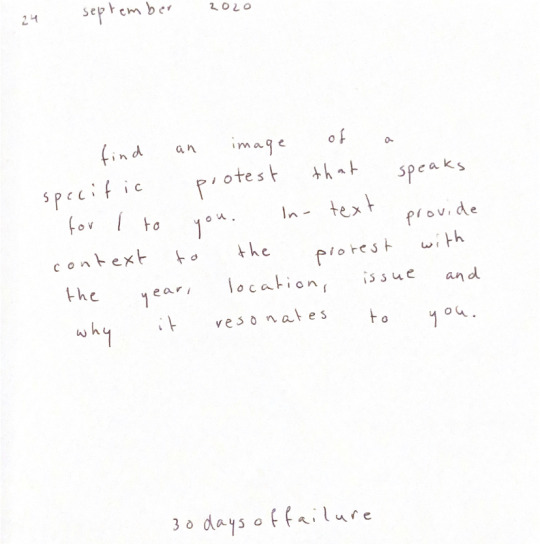 24 september 2020
find an image of a
specific protest that speaks
for / to you. In-text provide
context to the protest with
the year, location, issue and
why it resonates to you.
30daysoffailure